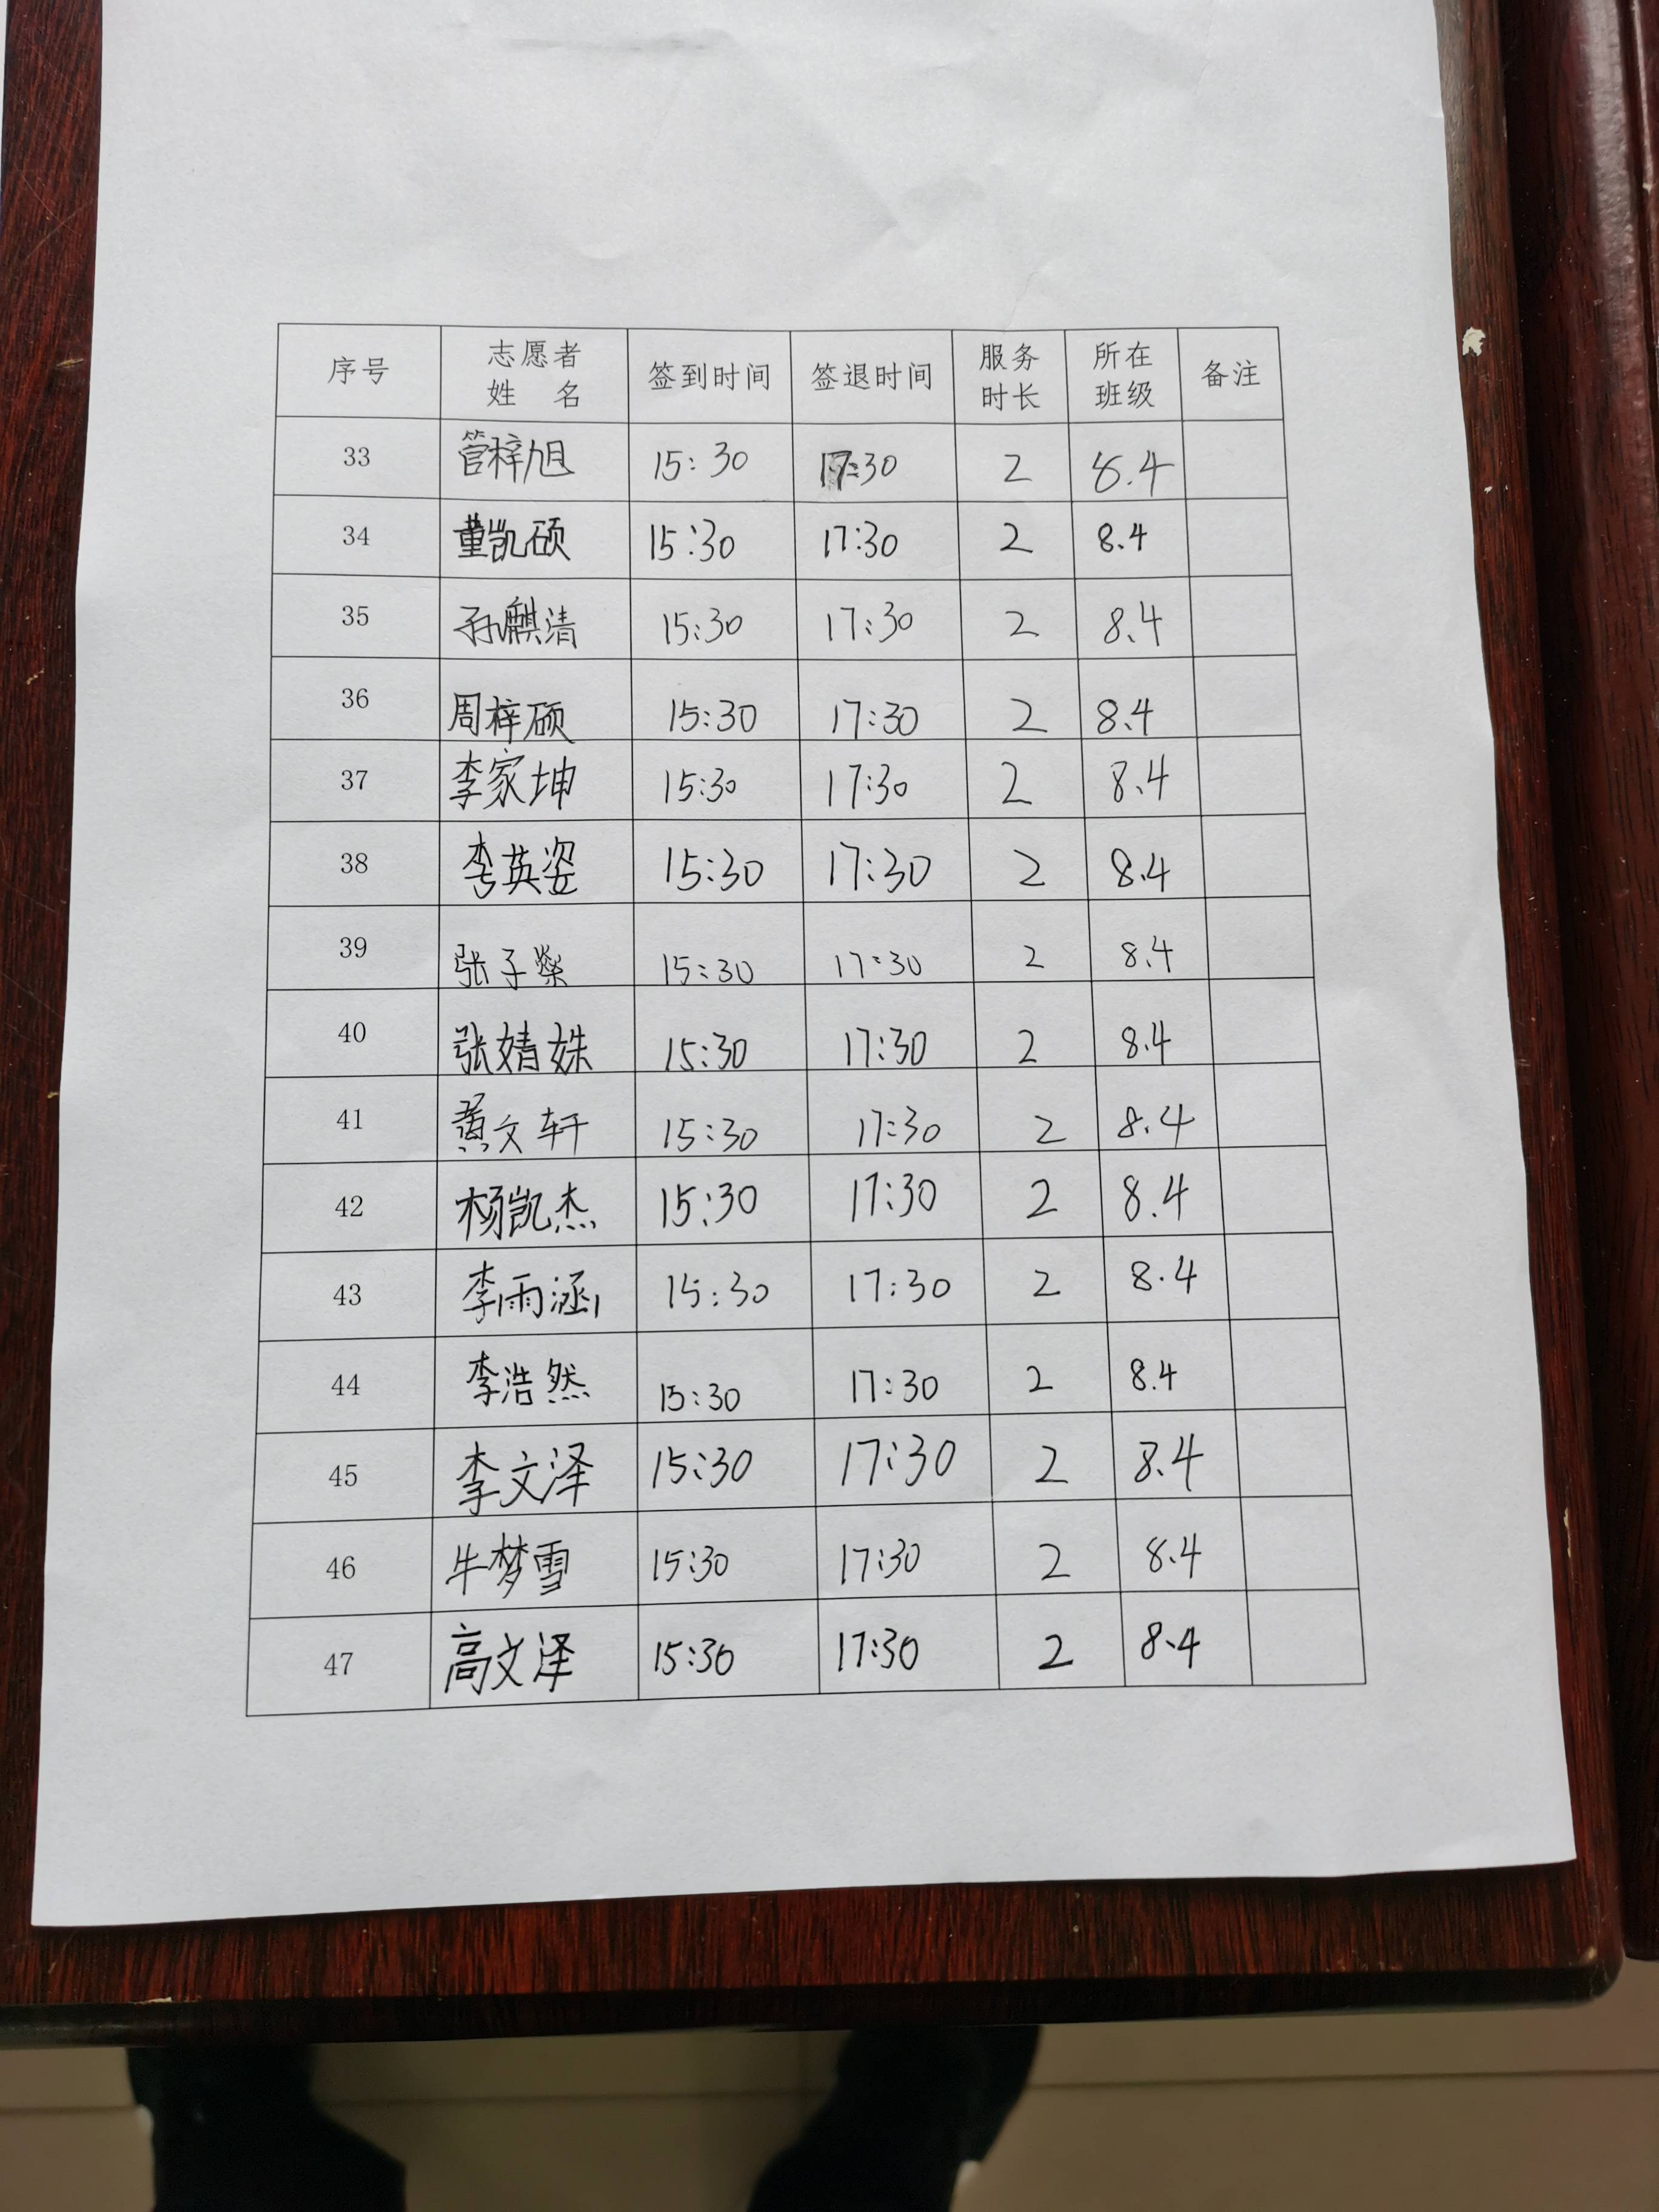 序号 志愿者姓 名 签到时间 签退时间 服务时长 所在班级 备注
33 管梓旭 15:30 17:30 2 8.4
34 董凯硕 15:30 17:30 2 8.4
35 孙麒清 15:30 17:30 2 8.4
36 周梓硕 15:30 17:30 2 8.4
37 李家坤 15:30 17:30 2 8.4
38 李英姿 15:30 17:30 2 8.4
39 张子燊 15:30 17:30 2 8.4
40 张婧姝 15:30 17:30 2 8.4
41 黄文轩 15:30 17:30 2 8.4
42 杨凯杰 15:30 17:30 2 8.4
43 李雨涵 15:30 17:30 2 8.4
44 李浩然 15:30 17:30 2 8.4
45 李文泽 15:30 17:30 2 8.4
46 牛梦雪 15:30 17:30 2 8.4
47 高文泽 15:30 17:30 2 8.4